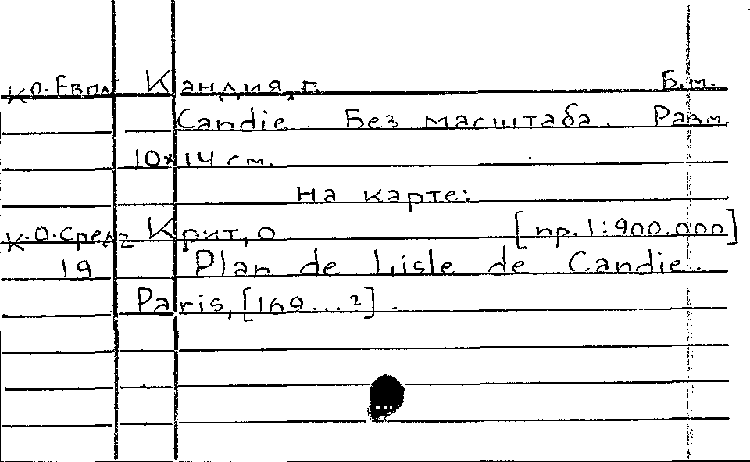 К О. Евпл Кандия, г. Б.м.
Candie Без масштаба. Разм.
10x14 см.
На карте:
К-О. Сред Крит, о [пр. 1:900.000]
19 Plan de Lisle de Candie.
Paris, [169...?].